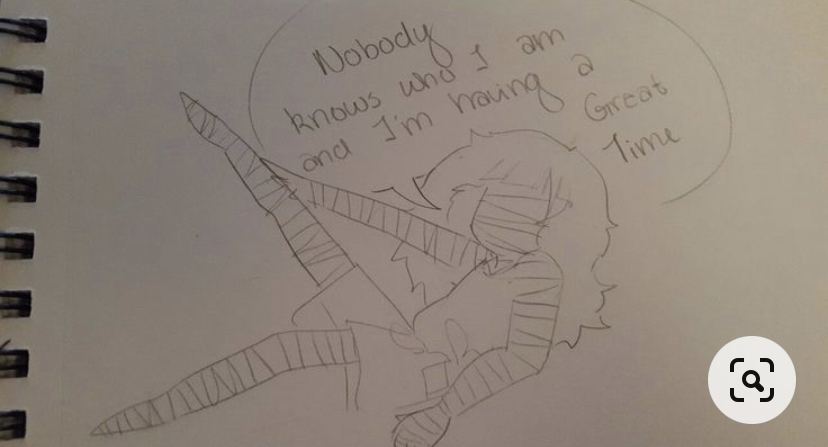 Nobody
knows who I am
and I'm having a
Great
Time